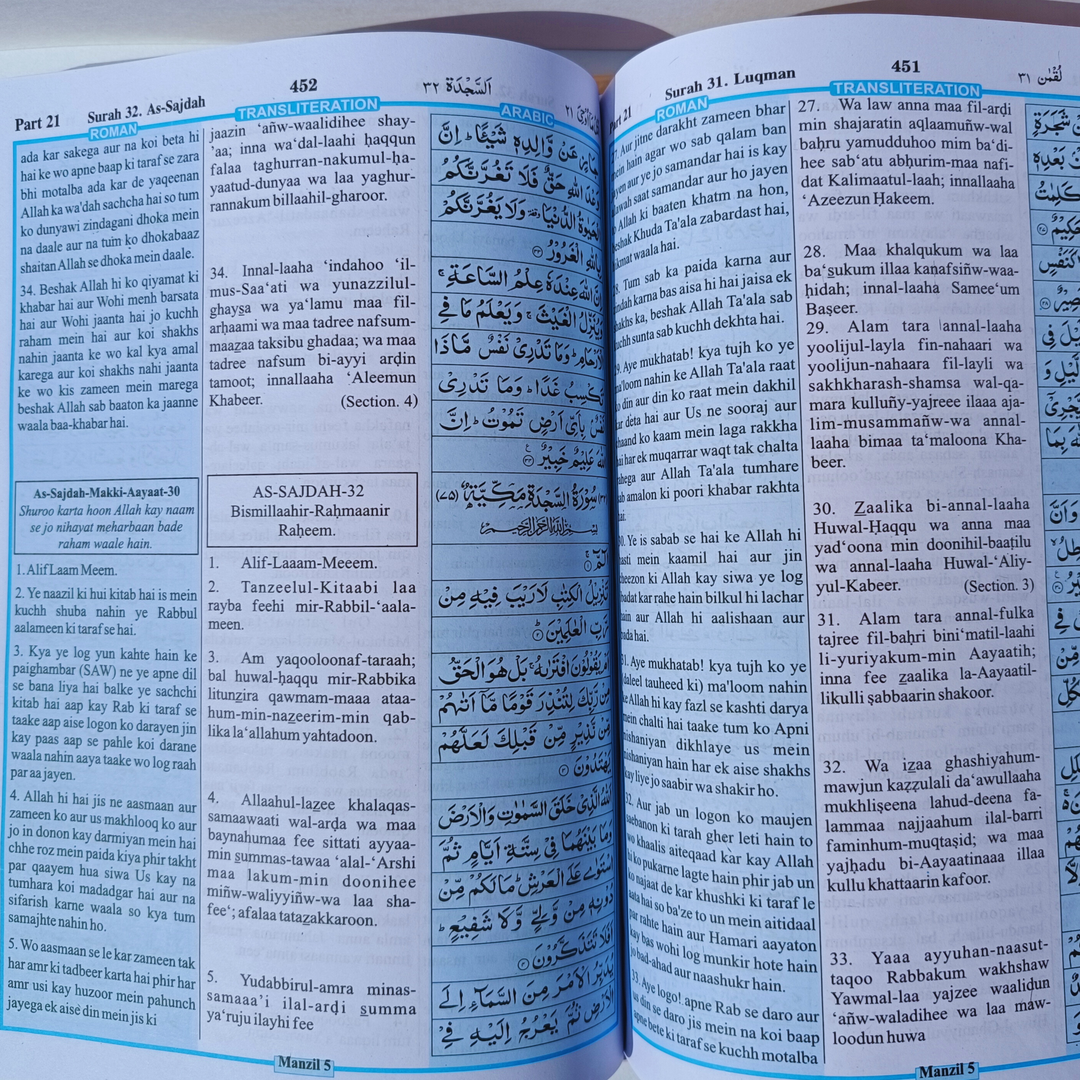 Part 21
Surah 32. As-Sajdah
452
اَلسَّجْدَة ٣٢
ROMAN
TRANSLITERATION
ARABIC
ada kar sakega aur na koi beta hi
hai ke wo apne baap ki taraf se zara
bhi motalba ada kar de yaqeenan
Allah ka wa'dah sachcha hai so tum
ko dunyawi zindagani dhoka mein
na daale aur na tum ko dhokabaaz
shaitan Allah se dhoka mein daale.
34. Beshak Allah hi ko qiyamat ki
khabar hai aur Wohi menh barsata
hai aur Wohi jaanta hai jo kuchh
raham mein hai aur koi shakhs
nahin jaanta ke wo kal kya amal
karega aur koi shakhs nahi jaanta
ke wo kis zameen mein marega
beshak Allah sab baaton ka jaanne
waala baa-khabar hai.
As-Sajdah-Makki-Aayaat-30
Shuroo karta hoon Allah kay naam
se jo nihayat meharbaan bade
raham waale hain.
1. Alif Laam Meem.
2. Ye naazil ki hui kitab hai is mein
kuchh shuba nahin ye Rabbul
aalameen ki taraf se hai.
3. Kya ye log yun kahte hain ke
paighambar (SAW) ne ye apne dil
se bana liya hai balke ye sachchi
kitab hai aap kay Rab ki taraf se
taake aap aise logon ko darayen jin
kay paas aap se pahle koi darane
waala nahin aaya taake wo log raah
par aa jayen.
4. Allah hi hai jis ne aasmaan aur
zameen ko aur us makhlooq ko aur
jo in donon kay darmiyan mein hai
chhe roz mein paida kiya phir takht
par qaayem hua siwa Us kay na
tumhara koi madadgar hai aur na
sifarish karne waala so kya tum
samajhte nahin ho.
5. Wo aasmaan se le kar zameen tak
har amr ki tadbeer karta hai phir har
amr usi kay huzoor mein pahunch
jayega ek aise din mein jis ki
jaazin ‘añw-waalidihee shay-
’aa; inna wa‘dal-laahi ḥaqqun
falaa taghurran-nakumul-ḥa-
yaatud-dunyaa wa laa yaghur-
rannakum billaahil-gharoor.
34. Innal-laaha ‘indahoo ‘il-
mus-Saa‘ati wa yunazzilul-
ghaysa wa ya‘lamu maa fil-
arḥaami wa maa tadree nafsum-
maazaa taksibu ghadaa; wa maa
tadree nafsum bi-ayyi arḍin
tamoot; innallaaha ‘Aleemun
Khabeer. (Section. 4)
AS-SAJDAH-32
Bismillaahir-Raḥmaanir
Raḥeem.
1. Alif-Laaam-Meeem.
2. Tanzeelul-Kitaabi laa
rayba feehi mir-Rabbil-‘aala-
meen.
3. Am yaqooloonaf-taraah;
bal huwal-ḥaqqu mir-Rabbika
litunẓira qawmam-maaa ataa-
hum-min-nazeerim-min qab-
lika la‘allahum yahtadoon.
4. Allaahul-lazee khalaqas-
samaawaati wal-arḍa wa maa
baynahumaa fee sittati ayyaa-
min summas-tawaa ‘alal-‘Arshi
maa lakum-min doonihee
miñw-waliyyiñw-wa laa sha-
fee‘; afalaa tatazakkaroon.
5. Yudabbirul-amra minas-
samaaa’i ilal-arḍi summa
ya‘ruju ilayhi fee
جَازٍ عَنْ وَّالِدِهٖ شَيْـًٔا ؕ اِنَّ
وَعْدَ اللّٰهِ حَقٌّ فَلَا تَغُرَّنَّكُمُ
الْحَيٰوةُ الدُّنْيَا ۥ وَلَا يَغُرَّنَّكُمْ
بِاللّٰهِ الْغَرُوْرُ ٣٣
اِنَّ اللّٰهَ عِنْدَهٗ عِلْمُ السَّاعَةِ ۚ
وَيُنَزِّلُ الْغَيْثَ ۚ وَيَعْلَمُ مَا فِى
الْاَرْحَامِ ؕ وَمَا تَدْرِىْ نَفْسٌ مَّاذَا
تَكْسِبُ غَدًا ؕ وَمَا تَدْرِىْ
نَفْسٌۢ بِاَىِّ اَرْضٍ تَمُوْتُ ؕ اِنَّ
اللّٰهَ عَلِيْمٌ خَبِيْرٌ ٣٤
(٣٢) سُوْرَةُ السَّجْدَةِ مَكِّيَّةٌ (٧٥)
بِسْمِ اللّٰهِ الرَّحْمٰنِ الرَّحِيْمِ
الٓمّٓ ١
تَنْزِيْلُ الْكِتٰبِ لَا رَيْبَ فِيْهِ مِنْ
رَّبِّ الْعٰلَمِيْنَ ٢
اَمْ يَقُوْلُوْنَ افْتَرٰىهُ ۚ بَلْ هُوَ الْحَقُّ
مِنْ رَّبِّكَ لِتُنْذِرَ قَوْمًا مَّاۤ اَتٰىهُمْ
مِّنْ نَّذِيْرٍ مِّنْ قَبْلِكَ لَعَلَّهُمْ
يَهْتَدُوْنَ ٣
اَللّٰهُ الَّذِىْ خَلَقَ السَّمٰوٰتِ وَالْاَرْضَ
وَمَا بَيْنَهُمَا فِىْ سِتَّةِ اَيَّامٍ ثُمَّ
اسْتَوٰى عَلَى الْعَرْشِ ؕ مَا لَكُمْ مِّنْ
دُوْنِهٖ مِنْ وَّلِىٍّ وَّلَا شَفِيْعٍ ؕ
اَفَلَا تَتَذَكَّرُوْنَ ٤
يُدَبِّرُ الْاَمْرَ مِنَ السَّمَآءِ اِلَى
الْاَرْضِ ثُمَّ يَعْرُجُ اِلَيْهِ فِىْ
Manzil 5
Part 21
Surah 31. Luqman
451
لُقْمٰن ٣١
ROMAN
TRANSLITERATION
27. Aur jitne darakht zameen bhar
mein hain agar wo sab qalam ban
jayen aur ye jo samandar hai is kay
elawah saat samandar aur ho jayen
to Allah ki baaten khatm na hon,
beshak Khuda Ta'ala zabardast hai,
hikmat waala hai.
28. Tum sab ka paida karna aur
zindah karna bas aisa hi hai jaisa ek
shakhs ka, beshak Allah Ta'ala sab
kuchh sunta sab kuchh dekhta hai.
29. Aye mukhatab! kya tujh ko ye
ma'loom nahin ke Allah Ta'ala raat
ko din aur din ko raat mein dakhil
kar deta hai aur Us ne sooraj aur
chaand ko kaam mein laga rakkha
hai har ek muqarrar waqt tak chalta
rahega aur Allah Ta'ala tumhare
sab amalon ki poori khabar rakhta
hai.
30. Ye is sabab se hai ke Allah hi
hasti mein kaamil hai aur jin
cheezon ki Allah kay siwa ye log
ibadat kar rahe hain bilkul hi lachar
hain aur Allah hi aalishaan aur
bada hai.
31. Aye mukhatab! kya tujh ko ye
(daleel tauheed ki) ma'loom nahin
ke Allah hi kay fazl se kashti darya
mein chalti hai taake tum ko Apni
nishaniyan dikhlaye us mein
nishaniyan hain har ek aise shakhs
kay liye jo saabir wa shakir ho.
32. Aur jab un logon ko maujen
saebanon ki tarah gher leti hain to
wo khaalis aiteqaad kar kay Allah
hi ko pukarne lagte hain phir jab un
ko najaat de kar khushki ki taraf le
aata hai so ba'ze to un mein aitidaal
par rahte hain aur Hamari aayaton
kay bas wohi log munkir hote hain
jo bad-ahad aur naashukr hain.
33. Aye logo! apne Rab se daro aur
us din se daro jis mein na koi baap
apne bete ki taraf se kuchh motalba
27. Wa law anna maa fil-arḍi
min shajaratin aqlaamuñw-wal
baḥru yamudduhoo mim ba‘di-
hee sab‘atu abḥurim-maa nafi-
dat Kalimaatul-laah; innallaaha
‘Azeezun Ḥakeem.
28. Maa khalqukum wa laa
ba‘sukum illaa kanafsiñw-waa-
ḥidah; innal-laaha Samee‘um
Baṣeer.
29. Alam tara annal-laaha
yoolijul-layla fin-nahaari wa
yoolijun-nahaara fil-layli wa
sakhkharash-shamsa wal-qa-
mara kulluñy-yajreee ilaaa aja-
lim-musammañw-wa annal-
laaha bimaa ta‘maloona Kha-
beer.
30. Zaalika bi-annal-laaha
Huwal-Ḥaqqu wa anna maa
yad‘oona min doonihil-baaṭilu
wa annal-laaha Huwal-‘Aliy-
yul-Kabeer. (Section. 3)
31. Alam tara annal-fulka
tajree fil-baḥri bini‘matil-laahi
li-yuriyakum-min Aayaatih;
inna fee zaalika la-Aayaatil-
likulli ṣabbaarin shakoor.
32. Wa izaa ghashiyahum-
mawjun kaẓẓulali da‘awullaaha
mukhliṣeena lahud-deena fa-
lammaa najjaahum ilal-barri
faminhum-muqtaṣid; wa maa
yajḥadu bi-Aayaatinaaa illaa
kullu khattaarin kafoor.
33. Yaaa ayyuhan-naasut-
taqoo Rabbakum wakhshaw
Yawmal-laa yajzee waalidun
‘añw-waladihee wa laa maw-
loodun huwa
Manzil 5